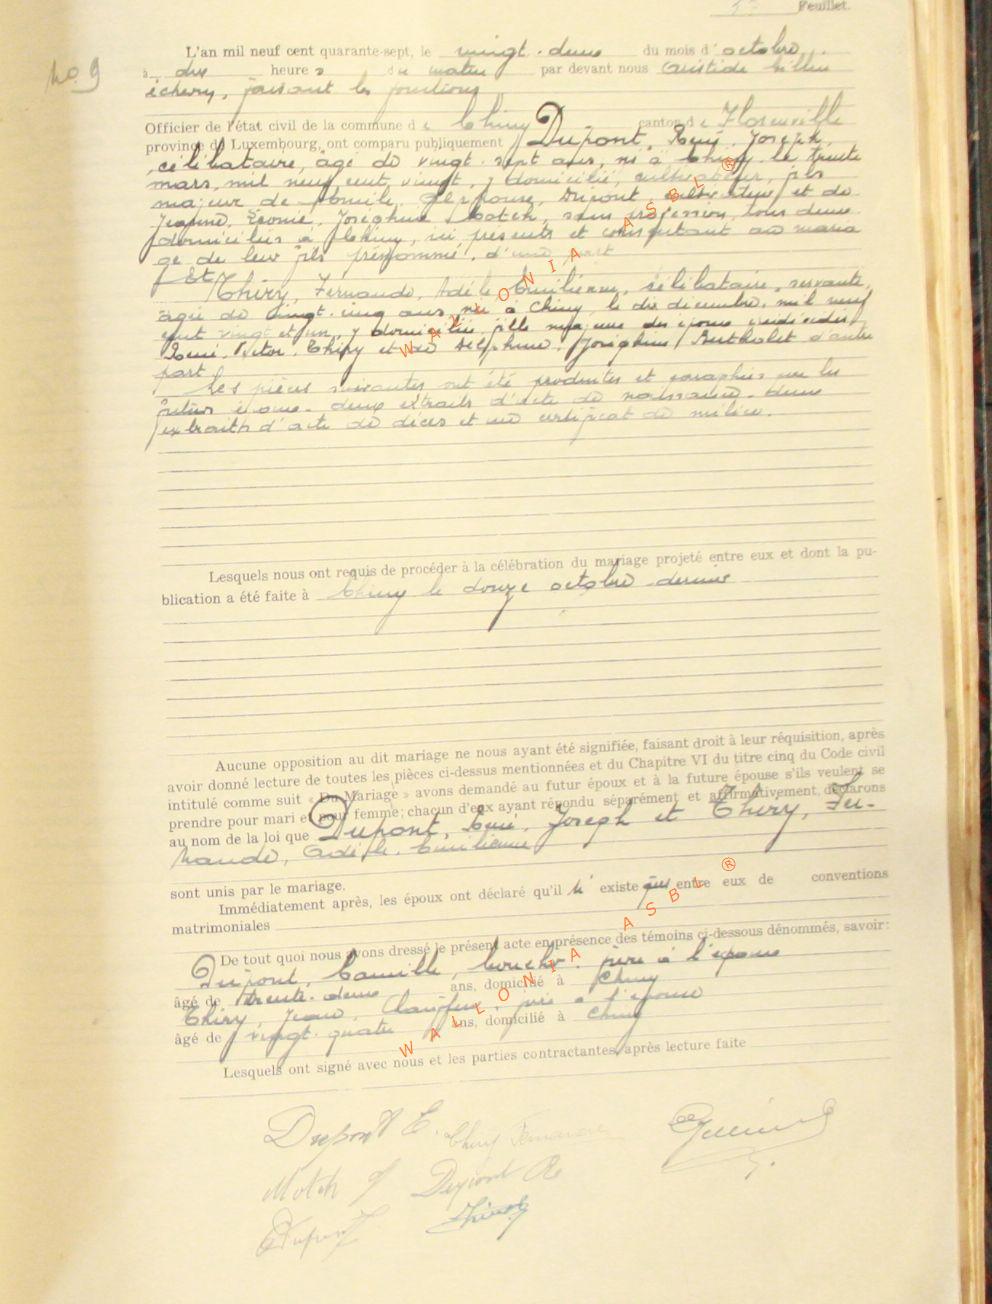 Feuillet.
No 9
L'an mil neuf cent quarante-sept, le vingt-deux du mois d'octobre,
à dix heures du matin par devant nous Aristide
échevin, faisant les fonctions
Officier de l'état civil de la commune de Chiny canton de Florenville
province de Luxembourg, ont comparu publiquement Dupont, René, Joseph,
célibataire, âgé de vingt-sept ans, né à Chiny le trente
mars, mil neuf cent vingt, y domicilié, cultivateur, fils
majeur de Camille, Alphonse, Dupont cultivateur et de
Jeanne, Léonie, Joséphine Motch, sans profession, tous deux
domiciliés à Chiny, ici présents et consentant au maria
ge de leur fils prénommé, d'une part
Et
Thiry, Fernande, Adèle Emilienne, célibataire, servante,
âgée de vingt-cinq ans, née à Chiny, le dix décembre mil neuf
cent vingt et un, y domiciliée, fille majeure des époux décédés
René, Victor, Thiry et de Delphine, Joséphine Bertholet d'autre
part.
Les pièces suivantes ont été produites et paraphées par les
futurs époux: deux extraits d'acte de naissance, deux
extraits d'acte de décès et un certificat de milice.
Lesquels nous ont requis de procéder à la célébration du mariage projeté entre eux et dont la pu-
blication a été faite à Chiny le douze octobre dernier
Aucune opposition au dit mariage ne nous ayant été signifiée, faisant droit à leur réquisition, après
avoir donné lecture de toutes les pièces ci-dessus mentionnées et du Chapitre VI du titre cinq du Code civil
intitulé comme suit « Du Mariage » avons demandé au futur époux et à la future épouse s'ils veulent se
prendre pour mari et pour femme; chacun d'eux ayant répondu séparément et affirmativement, déclarons
au nom de la loi que Dupont, René, Joseph et Thiry, Fer-
nande, Adèle, Emilienne
sont unis par le mariage.
Immédiatement après, les époux ont déclaré qu'il n'existe pas entre eux de conventions
matrimoniales
De tout quoi nous avons dressé le présent acte en présence des témoins ci-dessous dénommés, savoir:
Dupont, Camille, boucher, frère à l'époux
âgé de trente-deux ans, domicilié à Chiny
Thiry, Jean, Chauffeur, frère à l'épouse
âgé de vingt-quatre ans, domicilié à Chiny
Lesquels ont signé avec nous et les parties contractantes, après lecture faite
Dupont C. Thiry Fernande
Motch J Dupont R
Dupont Thiry
WALLONIA ASBL ®
WALLONIA ASBL ®